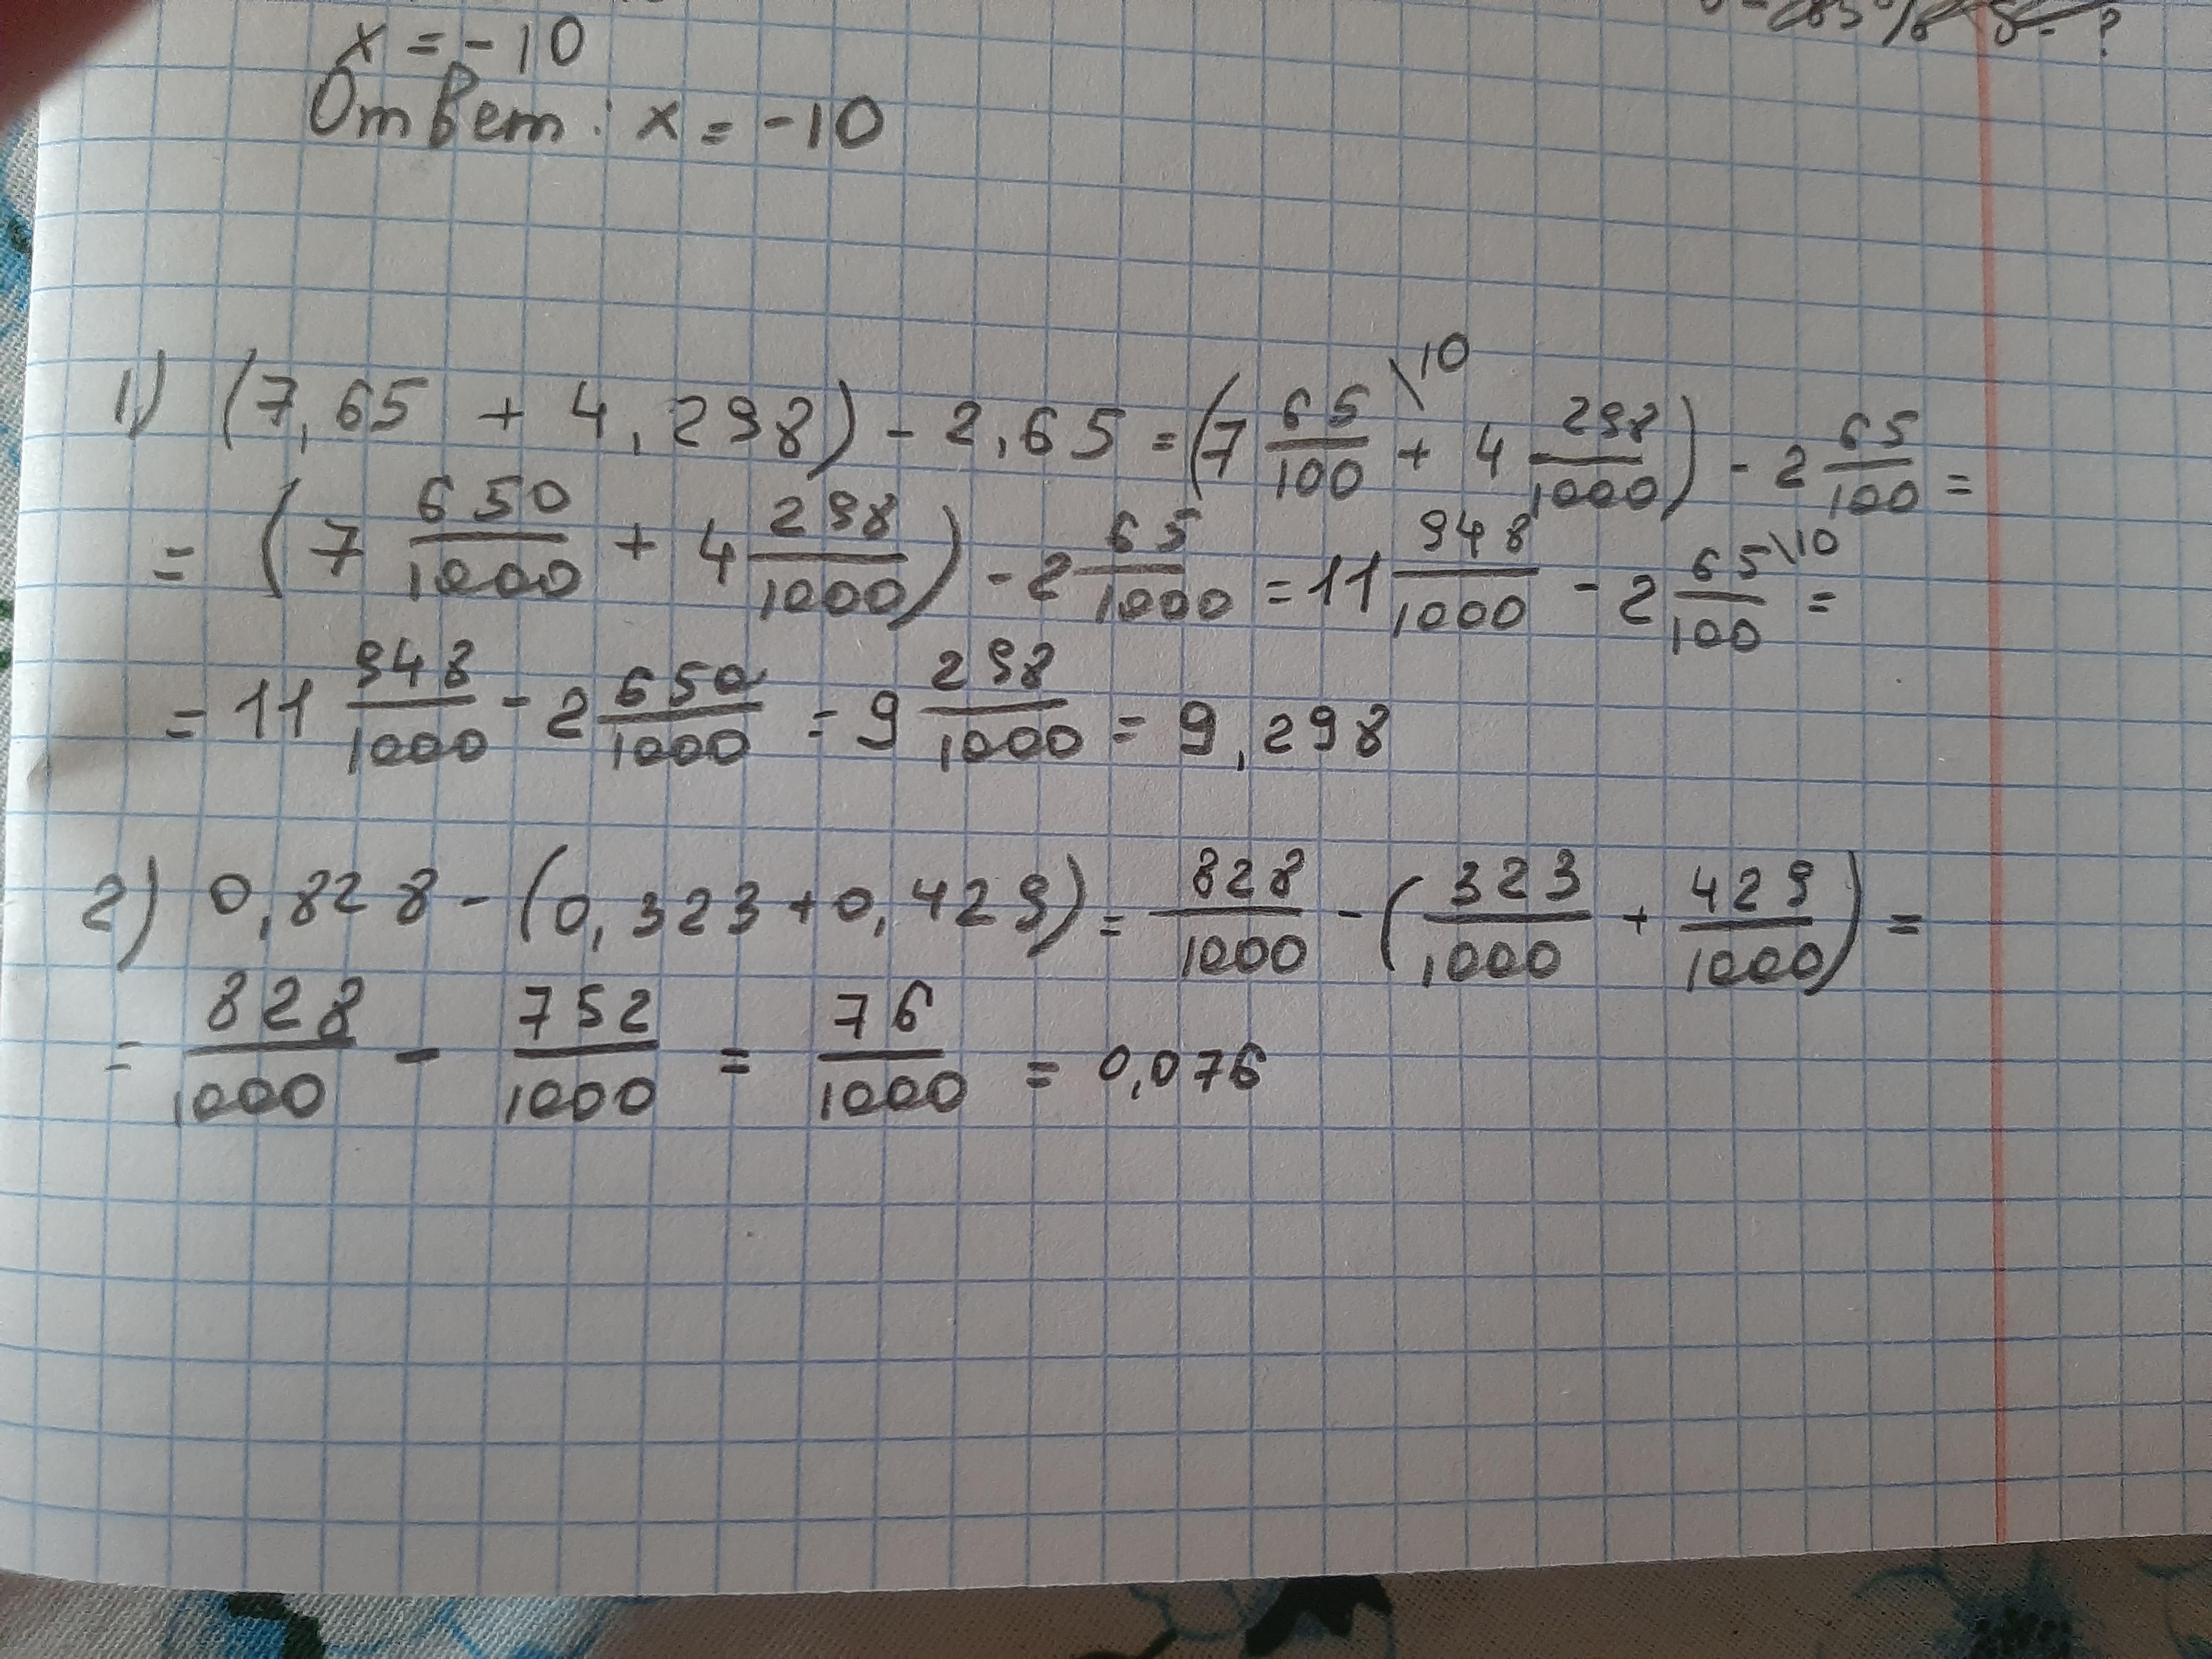 x = -10
Ответ: x = -10
1) (7,65 + 4,298) - 2,65 = (7 65/100 \10 + 4 298/1000) - 2 65/100 =
= (7 650/1000 + 4 298/1000) - 2 65/1000 = 11 948/1000 - 2 65/100 \10 =
= 11 948/1000 - 2 650/1000 = 9 298/1000 = 9,298
2) 0,828 - (0,323 + 0,429) = 828/1000 - (323/1000 + 429/1000) =
= 828/1000 - 752/1000 = 76/1000 = 0,076